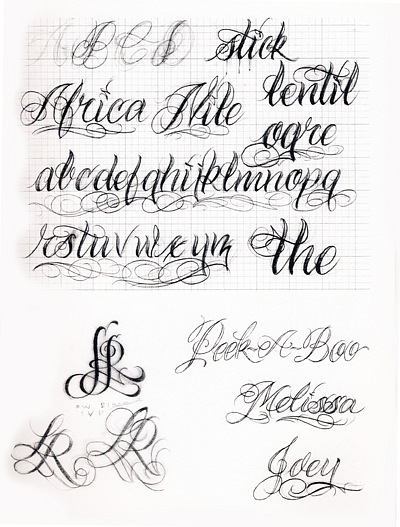 A B C D stick
Africa Nile lentil
ogre
abcdefghijklmnopq
rstuvwxyz the
Peek-A-Boo
Melissa
Joey